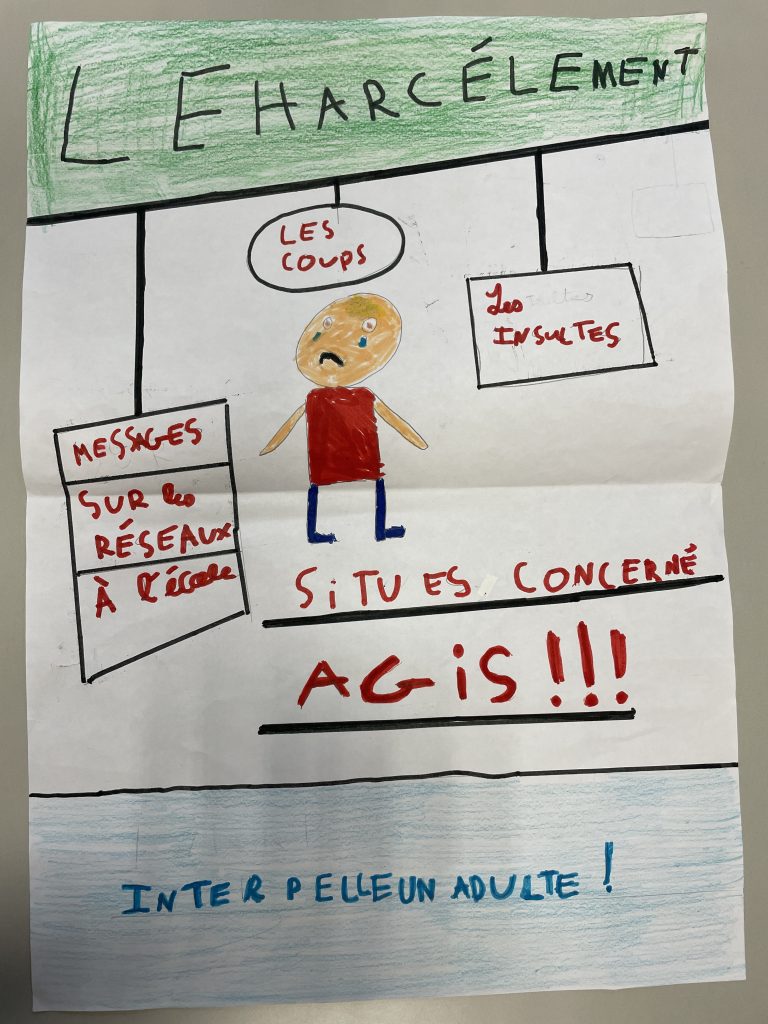 LE HARCÉLEMENT
LES
COUPS
Les
INSULTES
MESSAGES
SUR les
RÉSEAUX
À l'école
Si TU ES CONCERNÉ
AGiS!!!
INTERPELLE UN ADULTE !